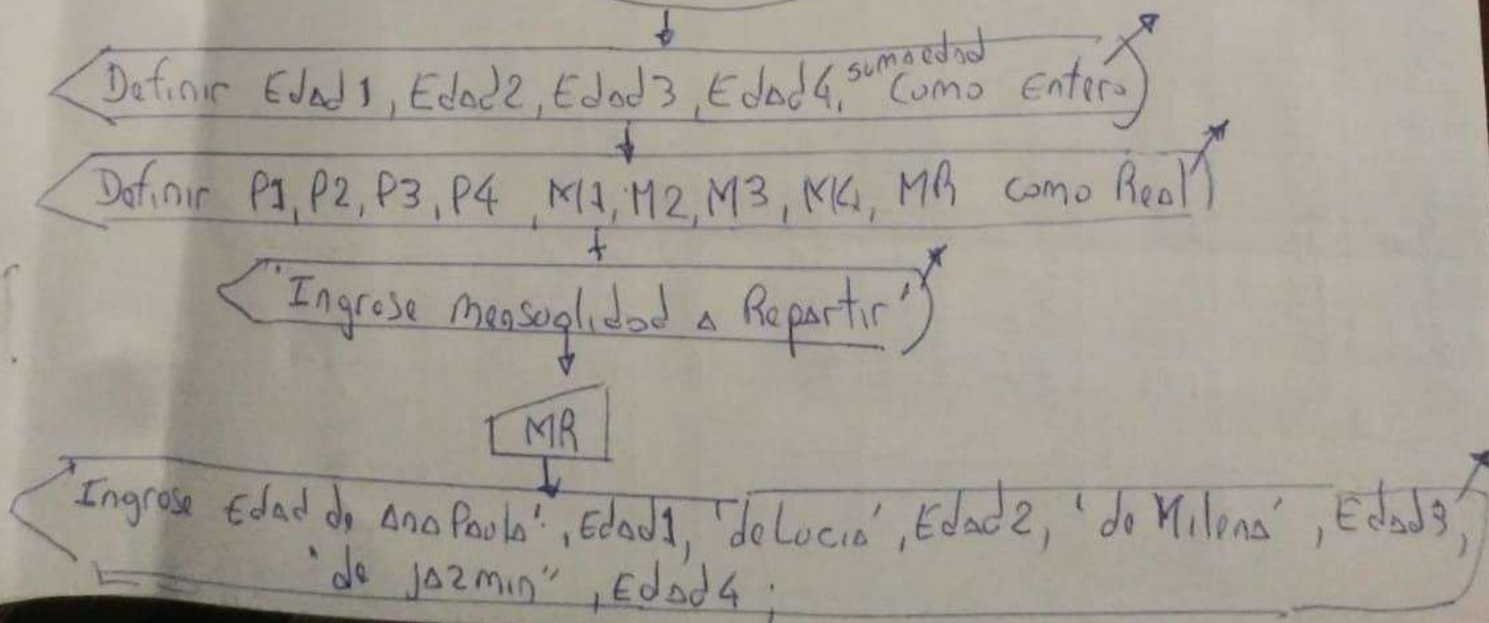 Definir Edad1, Edad2, Edad3, Edad4, sumaedad Como Entero
Definir P1, P2, P3, P4, M1, M2, M3, M4, MR como Real
"Ingrese mensualidad a Repartir"
MR
Ingrese Edad de Ana Paula", Edad1, 'de Lucia', Edad2, 'de Milena', Edad3,
"de jazmin", Edad4;